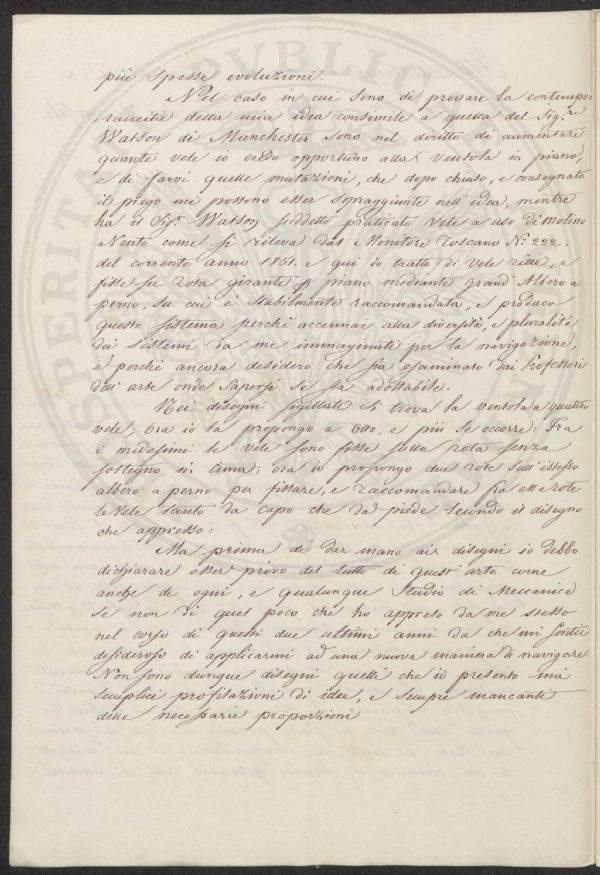 più spesse evoluzioni.
Nel caso in cui sono di provare la contempo:
raneità della mia idea consimile a quella del Sig.re
Watson di Manchester sono nel diritto di aumentare
quante vele io credo opportuno alla ventola in piano,
e di farvi quelle mutazioni, che dopo chiuso, e consegnato
il piego mi possono esser sopraggiunte nell'idea, mentre
ha il Sig.r Watson suddetto praticato Vele a uso di Molino
a Vento come si rileva dal Monitore Toscano N.o 222.
del corrente anno 1851. e qui io tratto di Vele ritte, e
fisse su rota girante p piano mediante grand'Albero a
perno, su cui è stabilmente raccomandata, e produco
questo sistema perchè accennai alla diversità, e pluralità
dei sistemi da me immaginati per la navigazione,
e perchè ancora desidero che sia esaminato dai Professori
dell'arte onde sapersi se sia adottabile.
Nei disegni sigillati si trova la ventola a quattro
vele, ora io la propongo a otto, e più se occorre: Fra
i medesimi le vele sono fisse sulla rota senza
sostegno in cima; ora io propongo due rote sull'istesso
albero a perno per fissare, e raccomandare fra esse rote
le vele tanto da capo che da piede secondo il disegno
che appresso:
Ma prima di dar mano ai disegni io debbo
dichiarare esser privo del tutto di quest'arte come
anche di ogni, e qualunque Studio di Meccanica
se non di quel poco che ho appreso da me stesso
nel corso di questi due ultimi anni da che mi sentii
desideroso di applicarmi ad una nuova maniera di navigare
Non sono dunque disegni quelli che io presento ma
semplici profilazioni di idee, e sempre mancanti
delle necessarie proporzioni